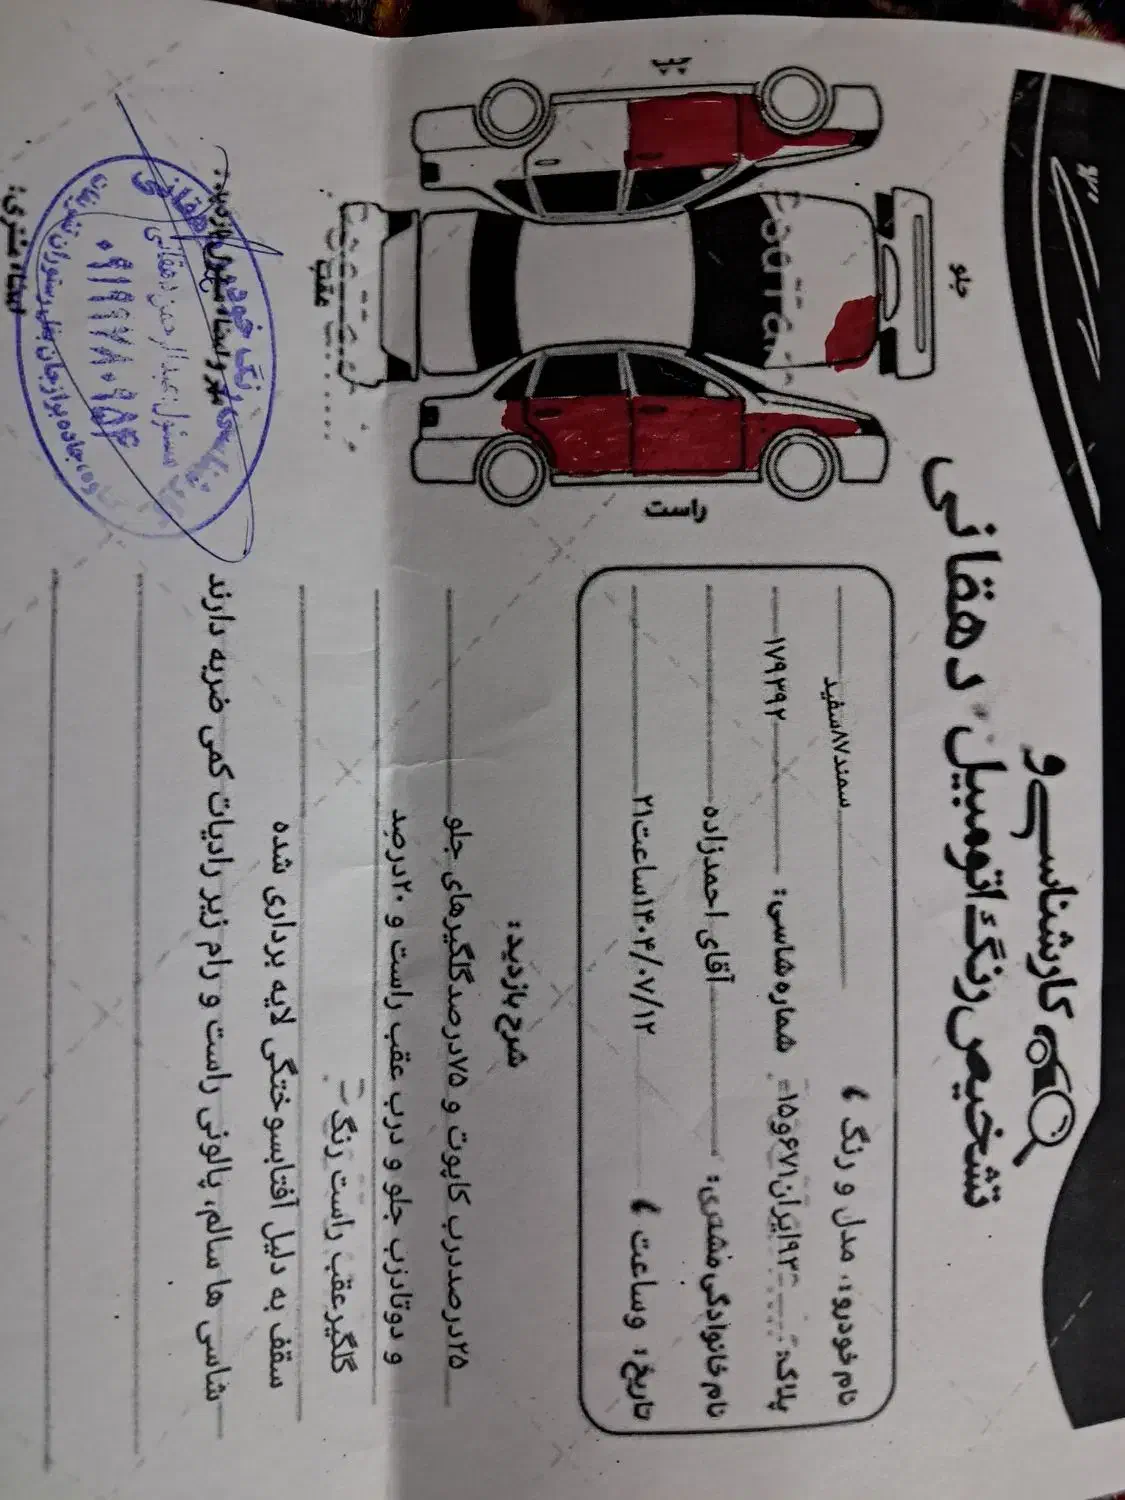 کارشناسی و
تشخیص رنگ اتومبیل دهقانی
نام خودرو، مدل و رنگ: سمند۸۷سفید
پلاک: ۹۳ایران۶۷۱و۱۵ شماره شاسی: ۱۷۹۳۹۲
نام خانوادگی مشتری: آقای احمدزاده
تاریخ: وساعت: ۱۴۰۴/۰۷/۱۲ساعت۲۱
چپ
جلو
عقب
راست
شرح بازدید:
۲۵درصددرب کاپوت و ۷۵درصدگلگیرهای جلو
و دوتادرب جلو و درب عقب راست و ۲۰درصد
گلگیرعقب راست رنگ
سقف به دلیل آفتابسوختگی لایه برداری شده
شاسی ها سالم، پالونی راست و رام زیر رادیات کمی ضربه دارند
مهر و امضاء
رنگ خودرو
دهقانی
مسئول: عبدالرحمن دهقانی
۰۹۱۹۹۷۸۰۹۵۴
امضاء مشتری: